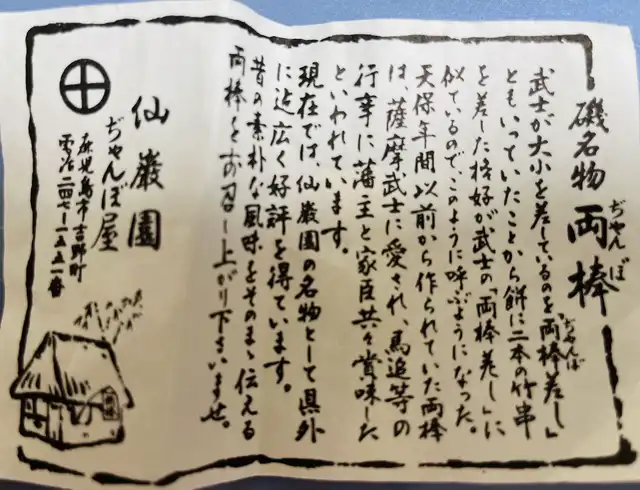 磯名物 両棒
ぢゃんぼ
武士が大小を差しているのを「両棒差し」
ぢゃんぼ
ともいっていたことから餅に二本の竹串
を差した格好が武士の「両棒差し」に
似ているので、このように呼ぶようになった。
天保年間以前から作られていた両棒
は、薩摩武士に愛され、馬追等の
行事に藩主と家臣共々賞味した
といわれています。
現在では、仙巌園の名物として県外
に迄広く好評を得ています。
昔の素朴な風味をそのまゝ伝える
両棒をお召し上がり下さいませ。
仙巌園
ぢゃんぼ屋
鹿児島市吉野町
電話 二四七ー一五五一番